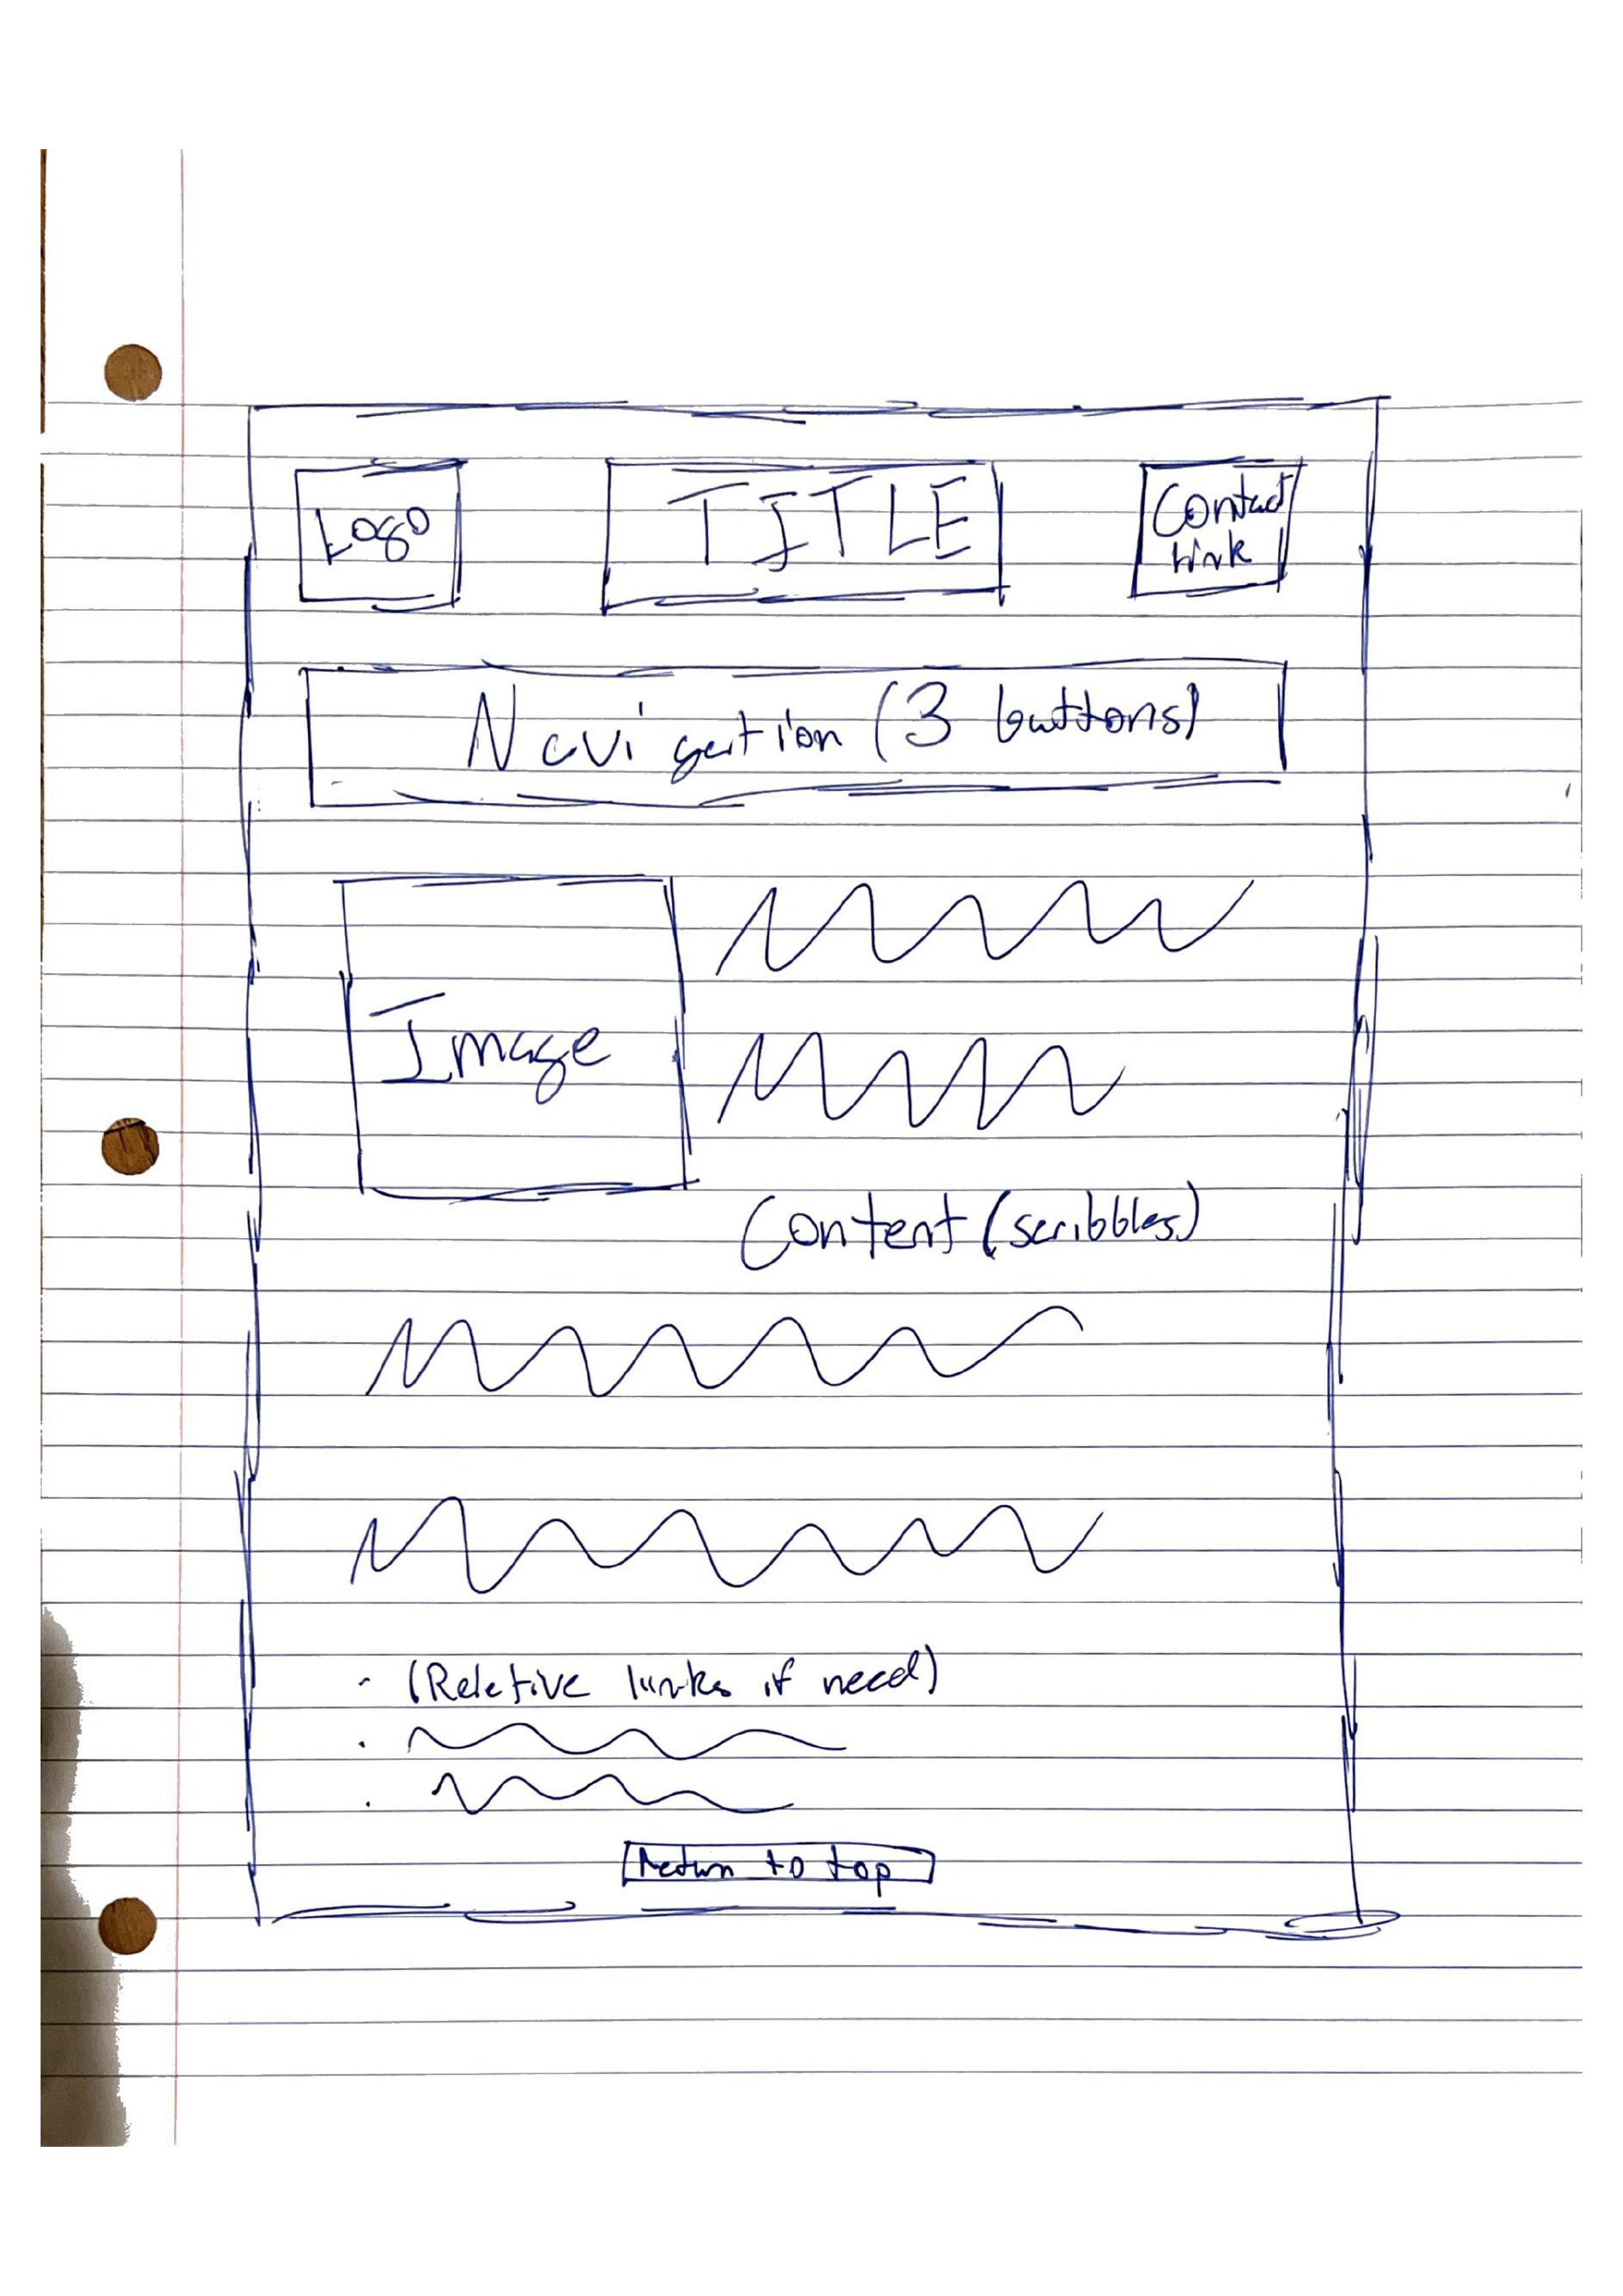 Logo
TITLE
Contact
Link
Navigation (3 buttons)
Image
Content (scribbles)
- (Reletive links if need)
Return to top